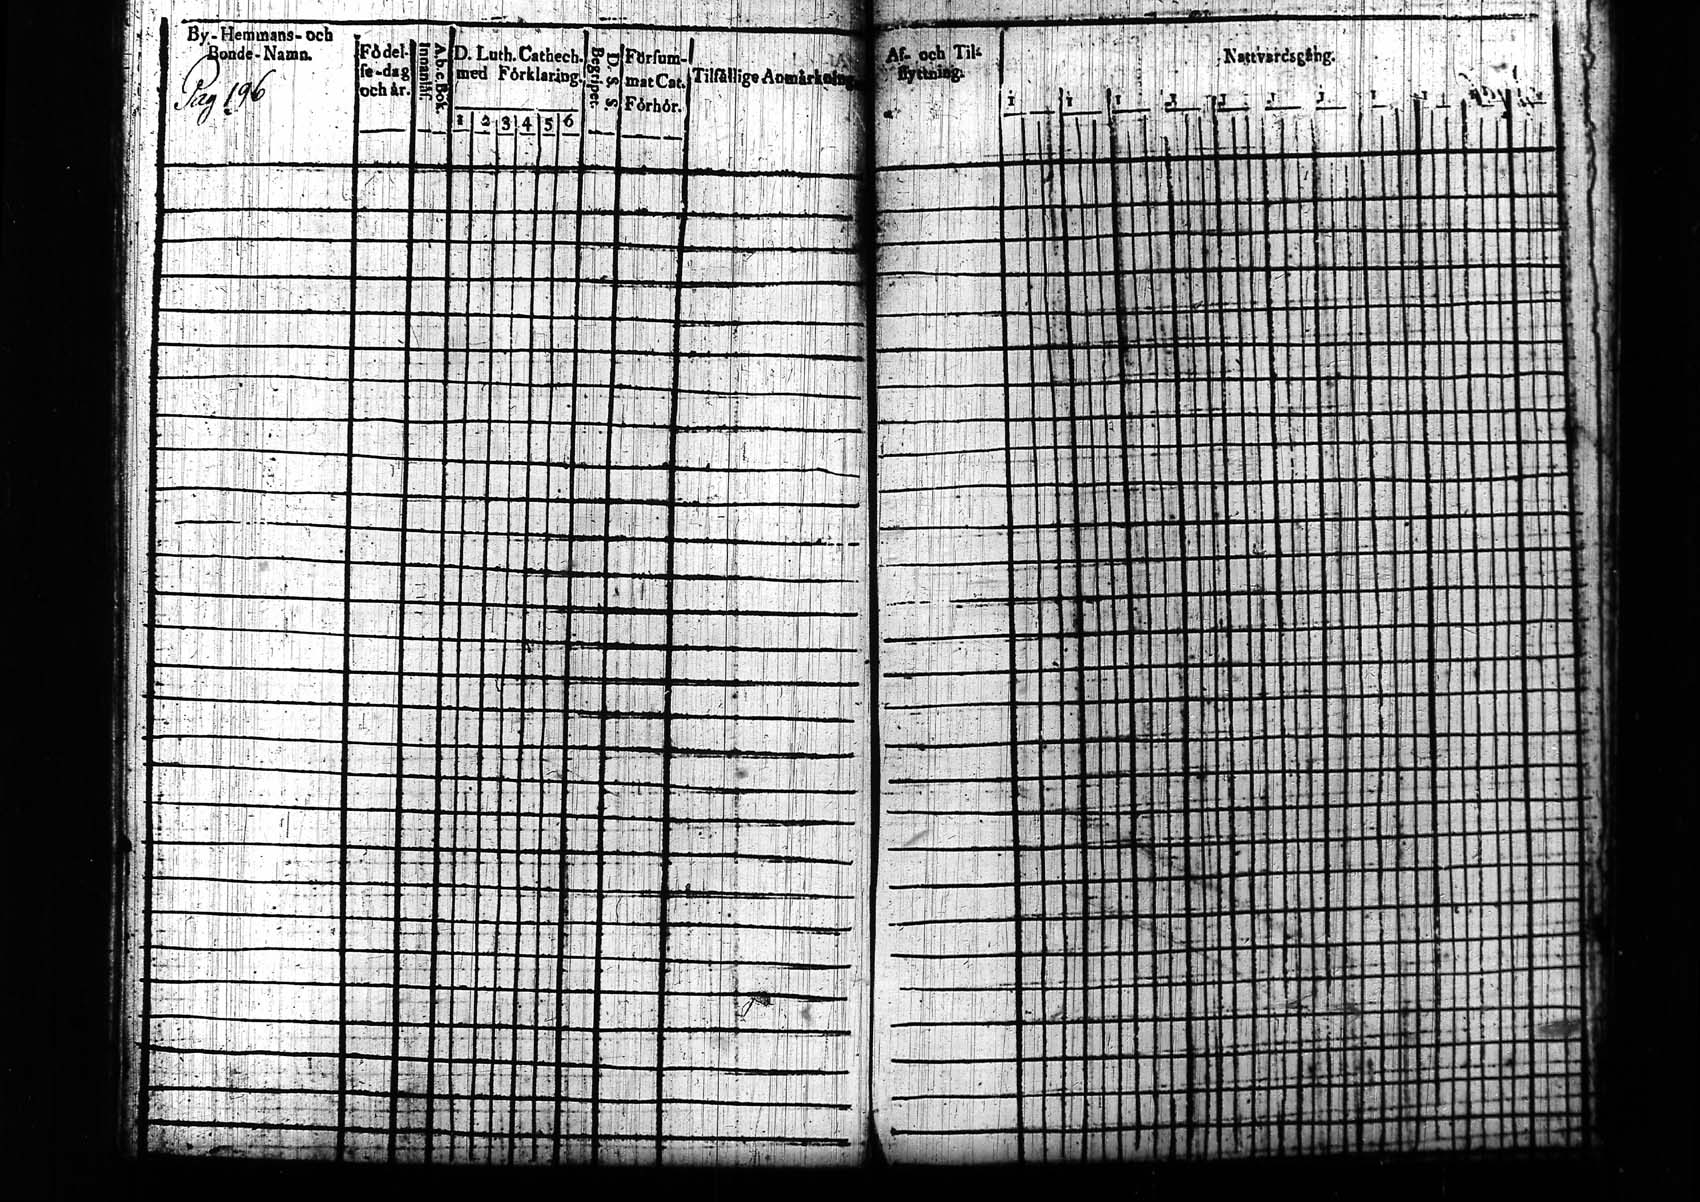 By-Hemmans- och
Bonde-Namn.
Pag 196
Födel-
se-dag
och år.
A.b.c.Bok.
Innantil.
D. Luth. Cathech.
med Förklaring.
1 2 3 4 5 6
D. S. S.
Begriper.
Försum-
mat Cat.
Förhör.
Tilfällige Anmärkning.
Af- och Til-
flyttning.
Nattvardsgång.
1 1 1 1 1 1 1 1 1